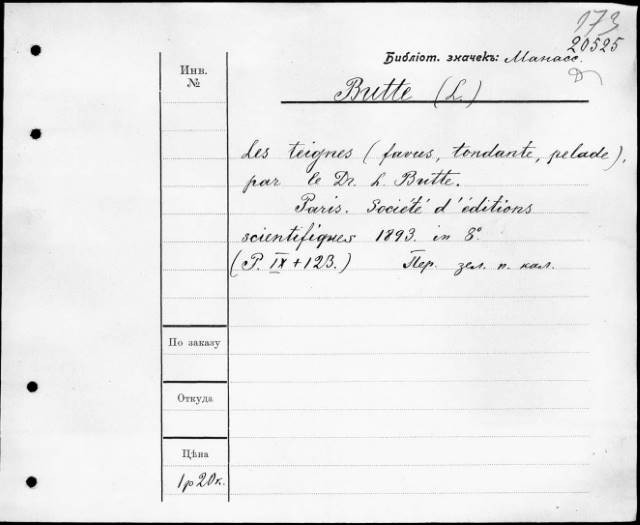 173
20525
Библіот. значекъ: Манасс.
Инв.
№
Butte (L.)
Les teignes (favus, tondante, pelade),
par le Dr. L. Butte.
Paris. Société d'éditions
scientifiques 1893. in 8°.
(P. IX + 123.) Пер. зел. п. кал.
По заказу
Откуда
Цѣна
1 р 20 к.